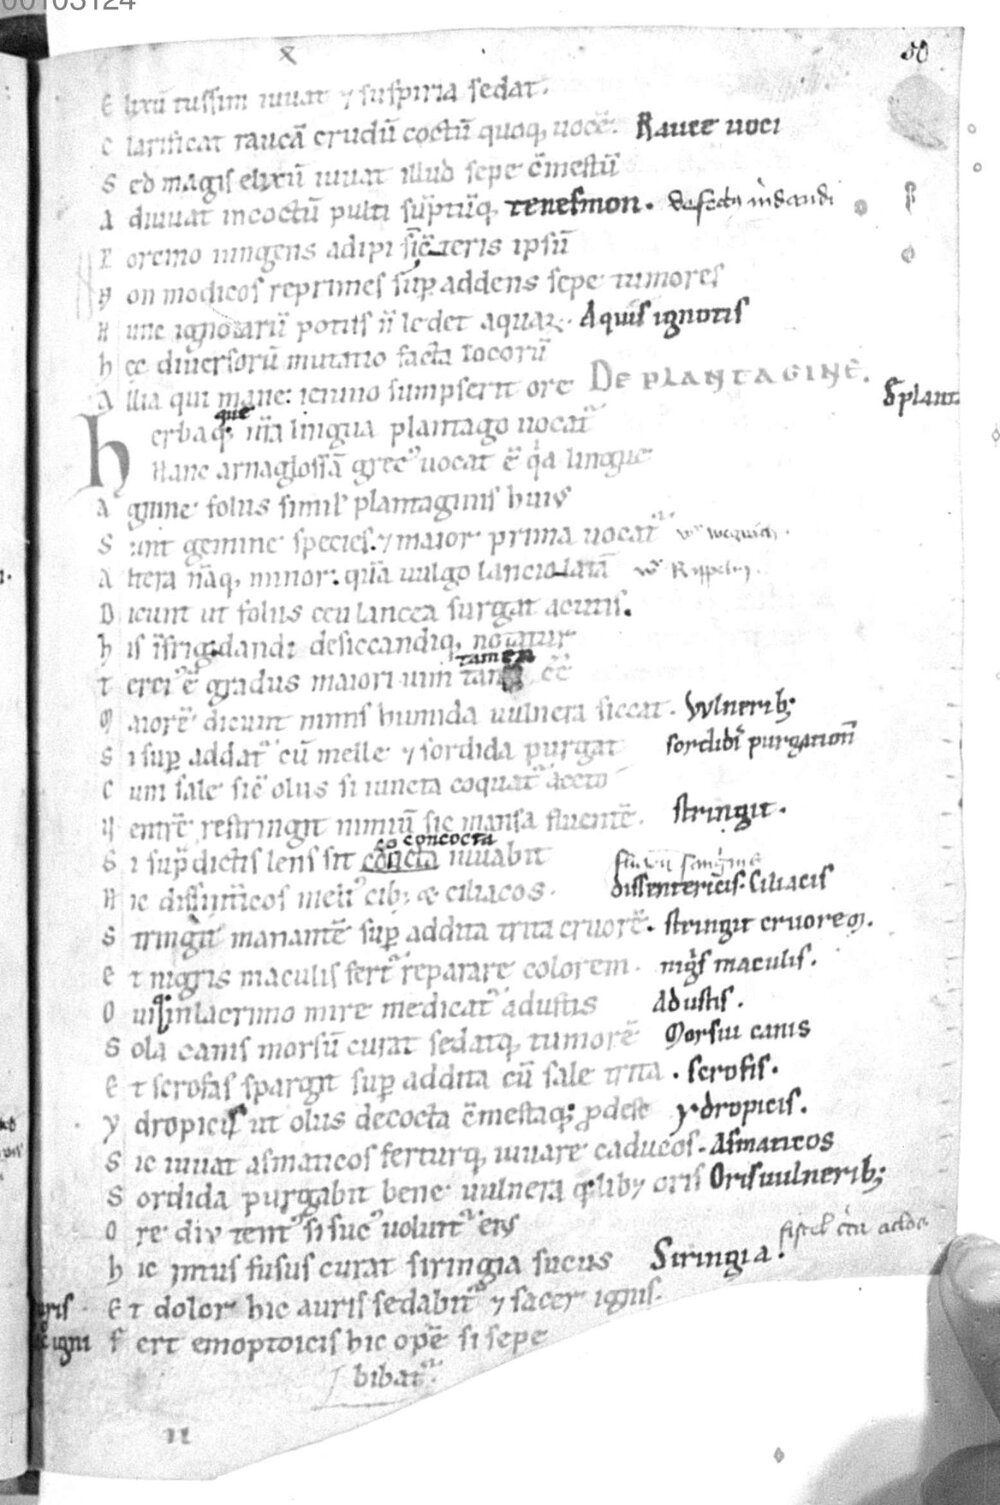 00103124
x
50
E lixũ tussim iuuat ⁊ suspiria sedat.
C larificat raucã crudũ coctũ quoq, uocẽ. Rauce uoci
S ed magis elixũ iuuat illud sepe c̃mestũ
A diuuat incoctũ pulti sũptũq, tenesmon.
P oremo iungens adipi sic̃ teris ipsũ
N on modicos reprimes sup̱ addens sepe tumores
N unc ignotarũ potus ñ ledet aquaꝝ. Aquis ignotis
h ec diuersorũ mutatio facta locorũ
A llia qui mane: ieiuno sumpserit ore DE PLANTAGINE.
plant
que
herbaq, nr̃a lingua plantago uocat᷑
Hanc arnaglossã grec᷒ uocat ẽ q̃a lingue
A gnine folus simil' plantaginis hui᷒
S unt gemine species. ⁊ maior prima uocat᷑
A ltera nãq, minor: quã uulgo lanciolatã
D icunt ut folus ceu lancea surgat acutis.
h is ĩfrigidandi desiccandiq, notatur
tamen
T erci᷒ ẽ gradus maiori uim
M aiorẽ dicunt nimis humida uulnera siccat. Vulnerib;
S i sup̱ addat᷑ cũ melle ⁊ sordida purgat sordib; purgationẽ
C um sale sic̃ olus si iuncta coquat᷑ aceto
U entrẽ restringit nimiũ sic mansa fluentẽ. stringit.
concocta
S i sup̱dictis lens sit cõncta iuuabit
H ic dissint̃icos meli᷒ cib; & ciliacos. dissentericis. Ciliacis
S tringit manantẽ sup̱ addita trita cruorẽ. stringit cruorem.
E t nigris maculis fert᷑ reparare colorem. nigˢ maculis.
O uis in lacrimo mire medicat᷑ adustis Adustis.
S ola canis morsũ curat sedatq, tumorẽ Morsui canis
E t scrofas spargit sup̱ addita cũ sale trita. scrofis.
Y dropicis ut olus decocta c̃mestaq; ꝓdesse ydropicis.
S ic iuuat asmaticos ferturq, iuuare caducos. Asmaticos
S ordida purgabit bene uulnera q̃lib; oris Oris uulnerib;
O re diu tent᷒ si suc᷒ uoluit᷑ eius
h ic intus fusus curat siringia sucus Siringia.
E t dolor hic auris sedabit᷑ ⁊ sacer ignis.
igni F ert emoptoicis hic opẽ si sepe
bibat᷑
II